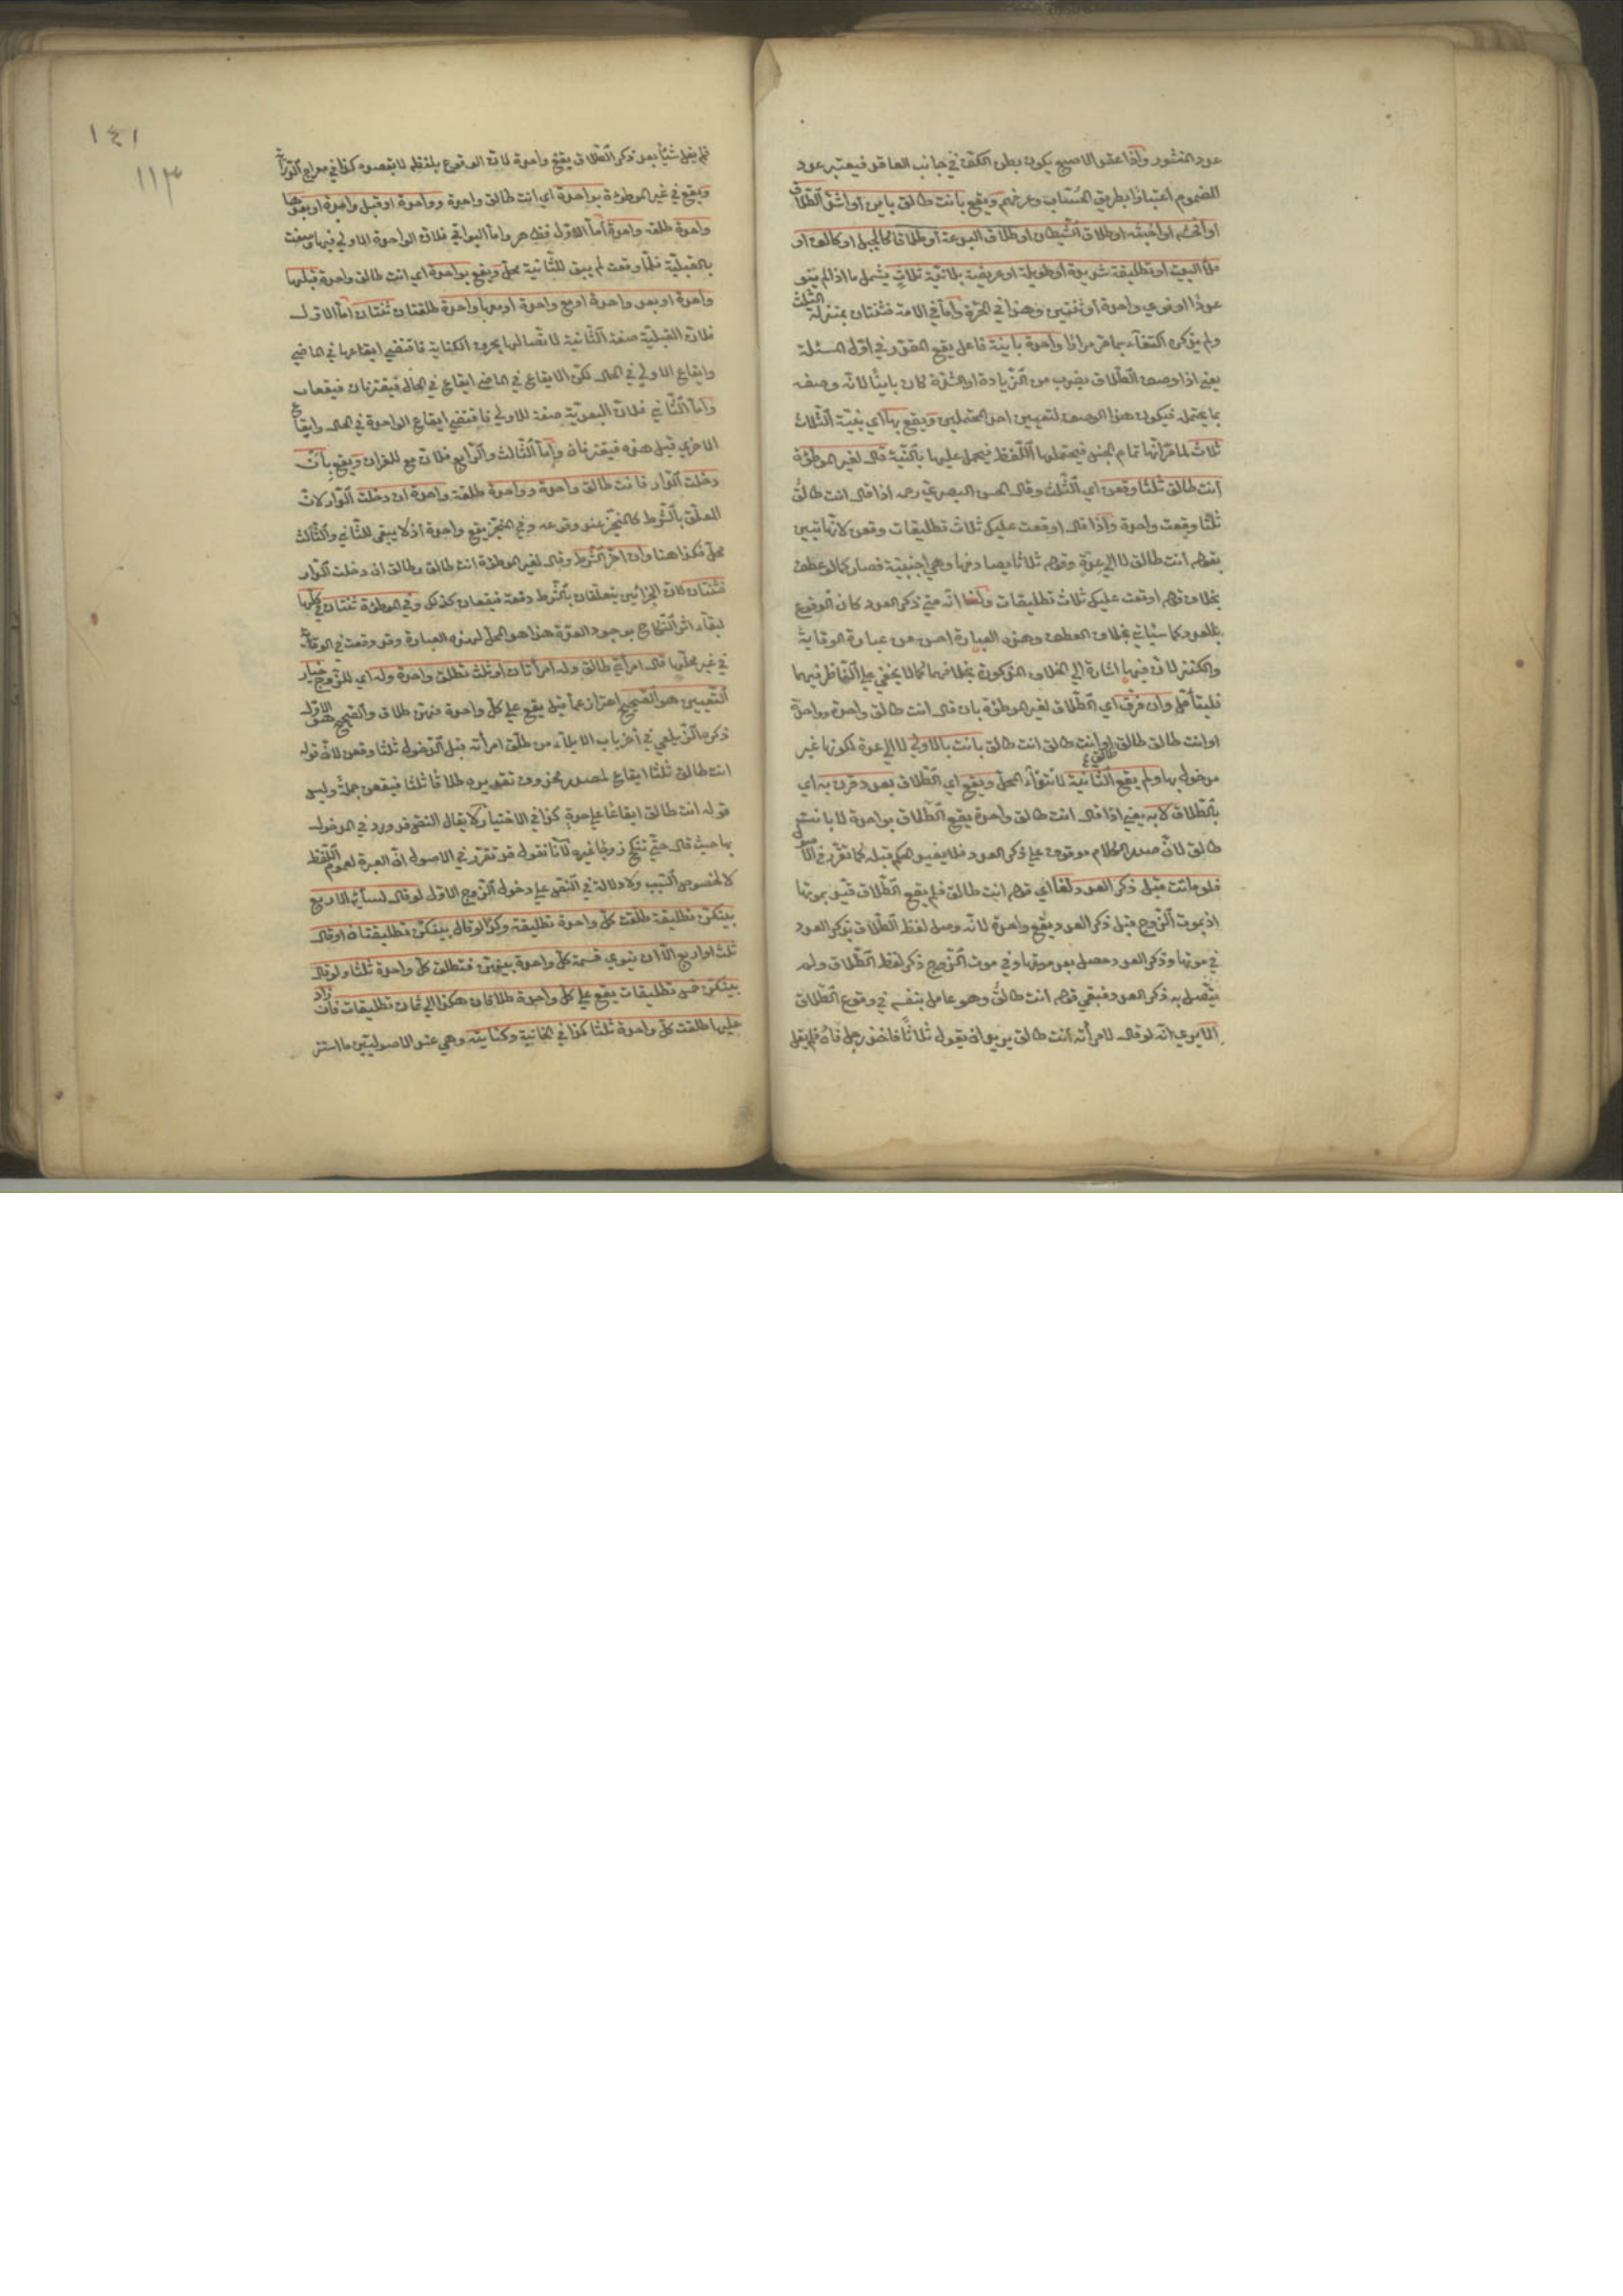 عدد المنشور وإذا عقد الاصبع يكون بطن الكف في جانب العاقد فيعتبر عدد
المضموم اعتبارا بطريق الحساب وعرفهم ويقع بانت طالق باين او اشد الطلاق
او افحشه او اخبثه او طلاق الشيطان او طلاق البدعة او طلاقا كالجبل او كالف او
ملأ البيت او تطليقة شديدة او طويلة او عريضة بلا نية ثلاث يشمل ما اذا لم ينو
عددا او نوى واحدة او ثنتين وهذا في الحرة واما في الامة فثنتان بمنزلة الثلث
ولم يذكره اكتفاء بما مر مرارا واحدة باينة فاعل يقع المقدر في اول المسئلة
يعني اذا وصف الطلاق بضرب من الزيادة او الشدة كان باينا لانه وصفه
بما يحتمله فيكون هذا الوصف لتعيين احد المحتملين ويقع بها اي بنية الثلاث
ثلاث لما مر انها تمام الجنس فيحتملها اللفظ فيحمل عليها بالنية قال لغير الموطؤة
انت طالق ثلثا وقعن اي الثلث وقال الحسن البصري رحمه اذا قال انت طالق
ثلثا وقعت واحدة واذا قال اوقعت عليك ثلاث تطليقات وقعن لانها تبين
بقوله انت طالق لا الى عدة وقوله ثلاثا يصادفها وهي اجنبية فصار كما لو عطف
بخلاف قوله اوقعت عليك ثلاث تطليقات ولنا انه متى ذكر العدد كان الوقوع
بالعدد كما سياتي بخلاف العطف وهذه العبارة احسن من عبارة الوقاية
والكنز لان فيها اشارة الى الخلاف المذكورة بخلافهما كما لا يخفى على الناظر فيهما
فليتأمل وان فرق اي الطلاق لغير الموطؤة بان قال انت طالق واحدة وواحدة
او انت طالق طالق طالق او انت طالق انت طالق بانت بالاولى لا الى عدة لكونها غير
مدخول بها ولم يقع الثانية لانتفاء المحل ويقع اي الطلاق بعدد قرن به اي
بالطلاق لا به يعني اذا قال انت طالق واحدة يقع الطلاق بواحدة لا بانت
طالق لان صدر الكلام موقوف على ذكر العدد فلا يفيد الحكم قبله كما تقرر في
فلو ماتت قبل ذكر العدد لغا اي قوله انت طالق فلم يقع الطلاق قيد بموتها
اذ بموت الزوج قبل ذكر العدد يقع واحدة لانه وصل لفظ الطلاق بذكر العدد
في موتها وذكر العدد حصل بعد موتها وفي موت الزوج ذكر لفظ الطلاق ولم
يتصل به ذكر العدد فبقي قوله انت طالق وهو عامل بنفسه في وقوع الطلاق
الا يرى انه لو قال لامرأته انت طالق يريد ان يقول ثلاثا فاخذ رجل فاه فلم يقل
١٤١
١١٣
فلم يقل شيأ بعد ذكر الطلاق يقع واحدة لان الوقوع بلفظه لا بقصده كذا في معراج الدراية
ويقع في غير الموطؤة بواحدة اي انت طالق واحدة وواحدة او قبل واحدة او بعدها
واحدة طلقة واحدة اما الاول فظاهر واما البواقي فلان الواحدة الاولى فيها وصفت
بالقبلية فلما وقعت لم يبق للثانية محل ويقع بواحدة اي انت طالق واحدة قبلها
واحدة او بعد واحدة او مع واحدة او معها واحدة طلقتان ثنتان اما الاول
فلان القبلية صفة الثانية لاتصالها بحرف الكناية فاقتضى ايقاعها في الماضي
وايقاع الاولى في الحال لكن الايقاع في الماضي ايقاع في الحال فيقترنان فيقعان
واما الثاني فلان البعدية صفة للاولى فاقتضى ايقاع الواحدة في الحال وايقاع
الاخرى قبل هذه فيقترنان واما الثالث والرابع فلان مع للقران ويقع بان
دخلت الدار فانت طالق واحدة وواحدة طلقة واحدة ان دخلت الدار لان
المعلق بالشرط كالمنجز عند وقوعه وفي المنجز يقع واحدة اذ لا يبقى للثاني والثالث
محل فكذا هنا وان اخر الشرط وقال لغير الموطؤة انت طالق وطالق ان دخلت الدار
فثنتان لان الجزائين يتعلقان بالشرط دفعة فيقعان كذلك وفي الموطؤة ثنتان في كلها
لبقاء اثر النكاح بوجود العدة هذا هو المحل لهذه العبارة وقد وقعت في الوقاية
في غير محلها قال امرأتي طالق وله امرأتان او ثلث تطلق واحدة وله اي للزوج خيار
التعيين هو الصحيح احتراز عما قيل يقع على كل واحدة منهن طلاق والصحيح هو الاول
ذكره الزيلعي في آخر باب الايلاء من طلق امرأته قبل الدخول ثلثا وقعن لان قوله
انت طالق ثلثا ايقاع لمصدر محذوف تقديره طلاقا ثلثا فيقعن جملة وليس
قوله انت طالق ايقاعا على حدة كذا في الاختيار لا يقال النص قد ورد في المدخول
بها حيث قال حتى تنكح زوجا غيره لانا نقول قد تقرر في الاصول ان العبرة لعموم اللفظ
لا لخصوص السبب ولا دلالة في النص على دخول الزوج الاول لو قال لنسائه الاربع
بينكن تطليقة طلقت كل واحدة تطليقة وكذا لو قال بينكن تطليقتان او قال
ثلث او اربع الا ان ينوي قسمة كل واحدة بينهن فتطلق كل واحدة ثلثا ولو قال
بينكن خمس تطليقات يقع على كل واحدة طلاقان هكذا الى ثمان تطليقات فان زاد
عليها طلقت كل واحدة ثلثا كذا في الخانية وكنايته وهي عند الاصوليين ما استتر